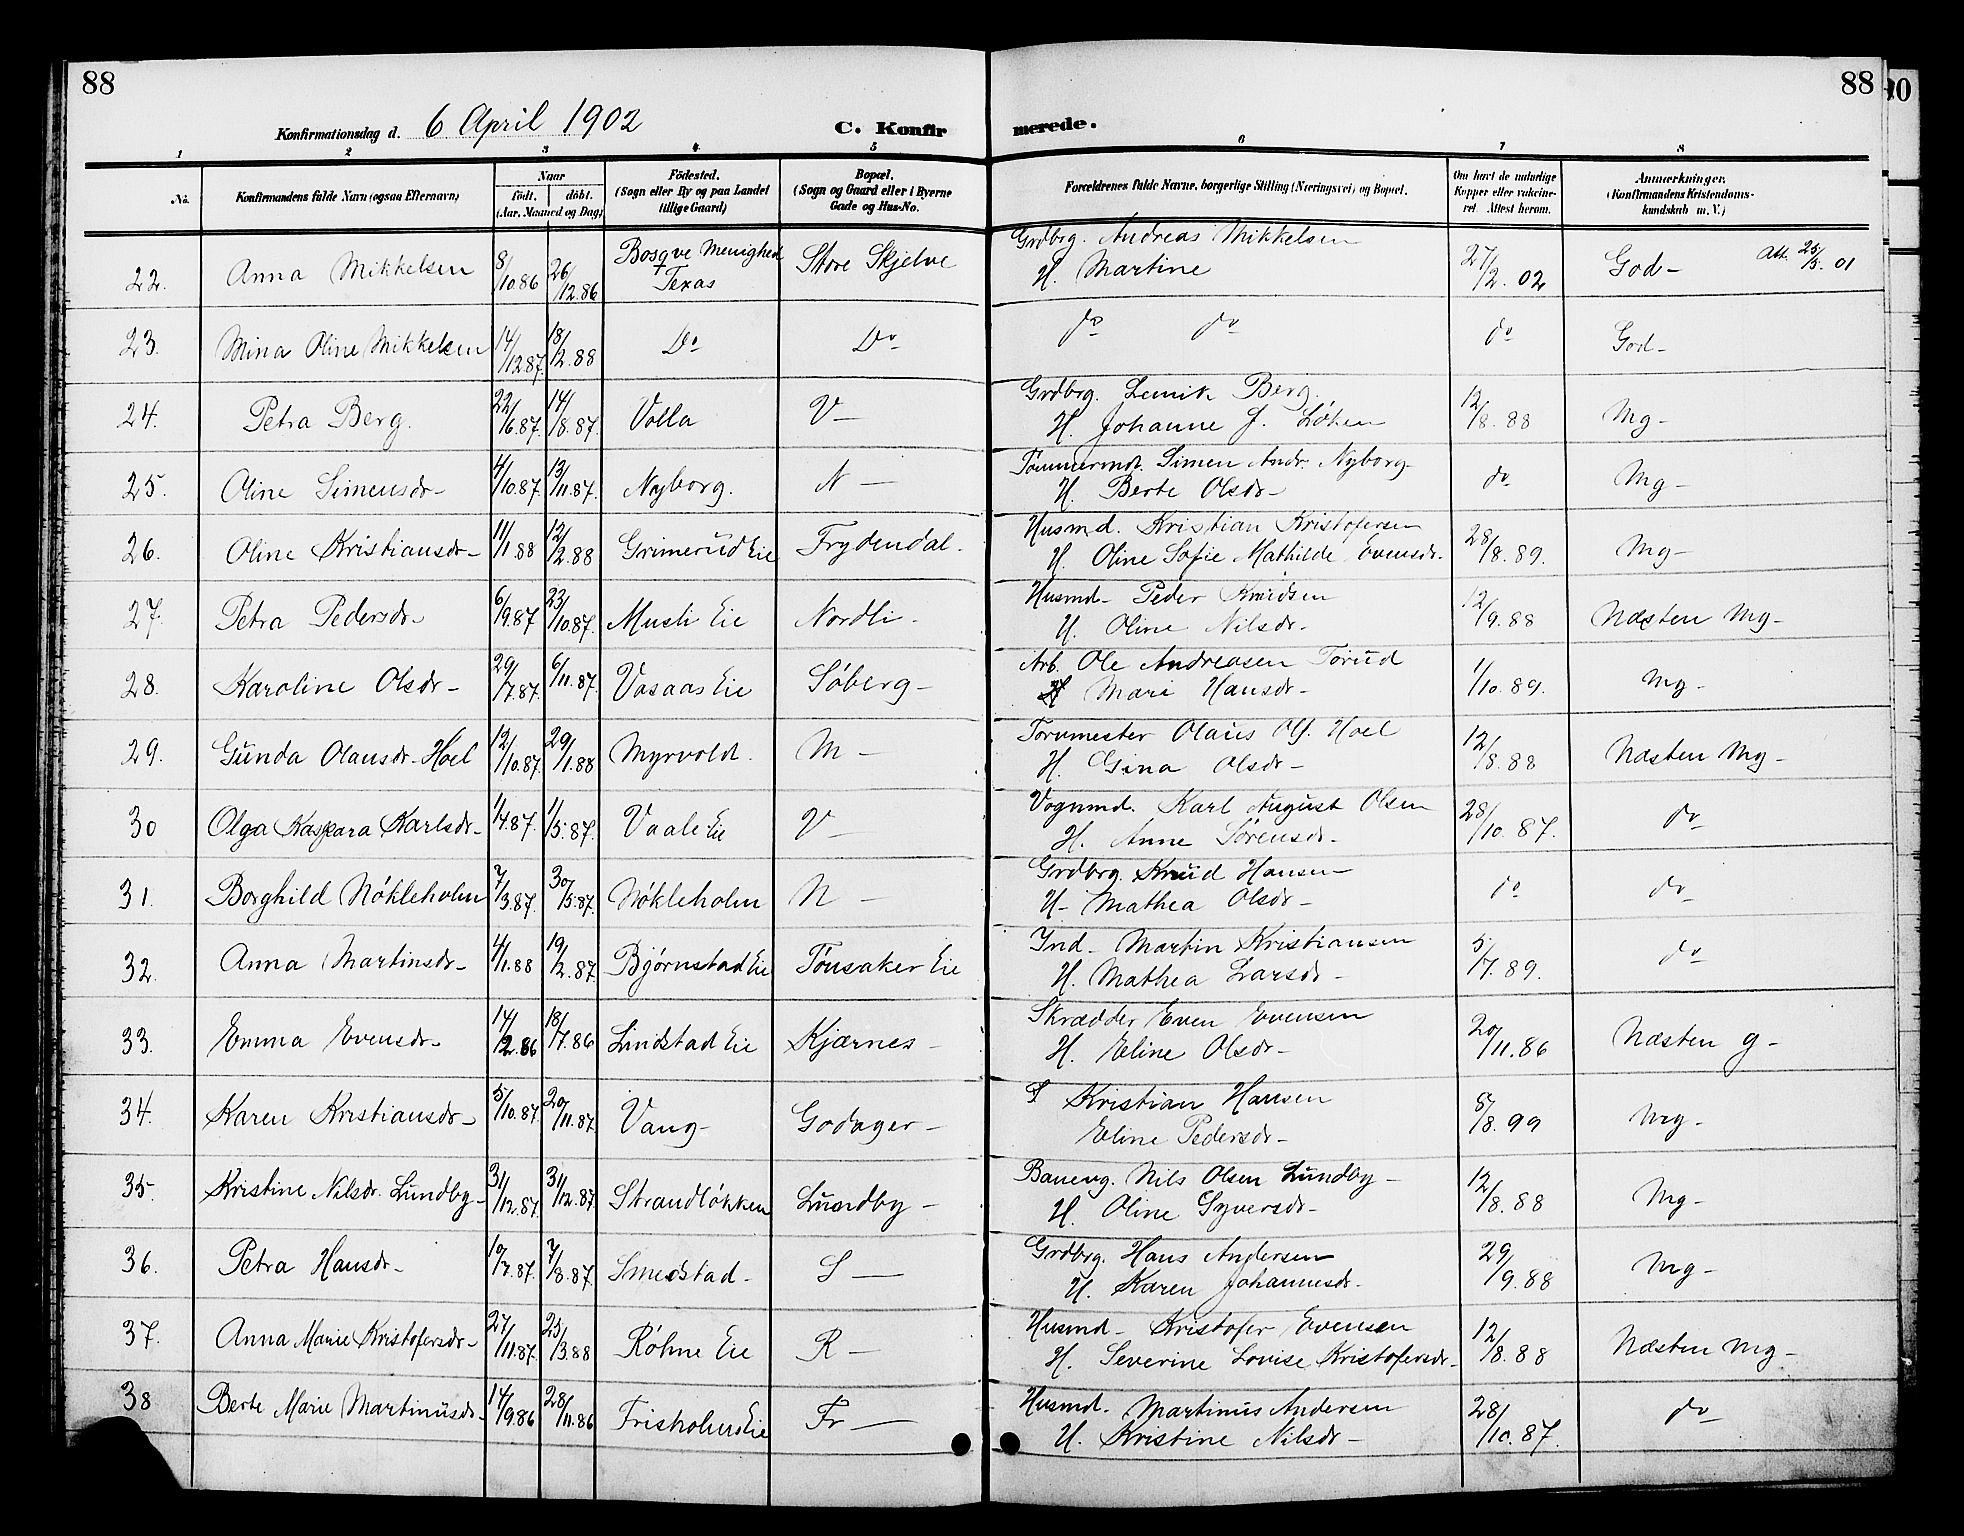 88
88
Konfirmationsdag d. 6 April 1902
C. Konfirmerede.
1 2 3 4 5 6 7 8
No. Konfirmandens fulde Navn (ogsaa Efternavn)
Naar født. døbt. (Aar, Maaned og Dag)
Fødested. (Sogn eller By og paa Landet tillige Gaard)
Bopæl. (Sogn og Gaard eller i Byerne Gade og Hus-No.
Forældrenes fulde Navne, borgerlige Stilling (Næringsvei) og Bopæl.
Om havt de naturlige Kopper eller vakcineret. Attest herom.
Anmerkninger. (Konfirmandens Kristendomskundskab m. V.)
22. Anna Mikkelsen 8/10.86 26/12.86 Bosqve Menighed Texas Store Skjelve Grdbrg. Andreas Mikkelsen H. Martine 27/2.02 God- Att. 25/3.01
23. Mina Oline Mikkelsen 14/12.87. 18/2.88 Do Do do do do God-
24. Petra Berg. 22/6.87. 14/8.87. Volla V- Grdbrg. Lemik Berg. H. Johanne J. Løken 12/8.88 Mg-
25. Oline Simensdr- 4/10.87. 13/11.87. Nyborg. N- Tømmermd. Simen Andr. Nyborg- H. Berte Olsdr- do Mg-
26. Oline Kristiansdr- 11/1.88 12/2.88 Grimerud Eie Frydendal. Husmd. Kristian Kristofersen H. Oline Sofie Mathilde Evensdr. 28/8.89. Mg-
27. Petra Pedersdr- 6/9.87 23/10.87. Musli Eie Nordli- Husmd- Peder Knudsen H. Oline Nilsdr- 12/9.88 Næsten Mg-
28. Karoline Olsdr- 29/7.87. 6/11.87. Vasaas Eie Søberg- Arb. Ole Andreasen Torud H Mari Hansdr- 1/10.89. Mg-
29. Gunda Olausdr. Hoel 12/10.87. 29/1.88 Myrvold. M- Torvmester Olaus Ols. Hoel H. Gina Olsdr- 12/8.88 Næsten Mg-
30 Olga Kaspara Karlsdr- 1/4.87. 1/5.87. Vaale Eie V- Vognmd. Karl August Olsen H. Anne Sørensdr- 28/10.87. do
31. Borghild Nøkleholm 7/3.87. 30/5.87. Nøkleholm N- Grdbrg. Knud Hansen H- Mathea Olsdr- do do
32. Anna Martinsdr- 4/1.88 19/2.87. Bjørnstad Eie Tønsaker Eie Ind- Martin Kristiansen H. Mathea Larsdr- 5/7.89. do
33. Emma Evensdr- 14/2.86 18/7.86 Lindstad Eie Kjærnes- Skrædder Even Evensen H. Eline Olsdr- 20/11.86 Næsten g-
34. Karen Kristiansdr- 5/10.87. 20/11.87. Vang- Godager- Kristian Hansen Eline Pedersdr- 8/8.99 Mg-
35 Kristine Nilsdr. Lundby- 31/12.87. 31/12.87. Strandløkken Lundby- Banevg. Nils Olsen Lundby- H. Oline Syversdr- 12/8.88 Mg-
36. Petra Hansdr- 10/7.87. 7/8.87. Smedstad- S- Grdbrg. Hans Andersen H. Karen Johannesdr- 29/9.88 Mg-
37. Anna Marie Kristofersdr- 27/11.87. 25/3.88 Røhne Eie R- Husmd- Kristofer Evensen H. Severine Lovise Kristofersdr- 12/8.88 Næsten Mg-
38 Berte Marie Martinusdr- 14/9.86 28/11.86 Frisholm Eie Fr- Husmd. Martinus Andersen H. Kristine Nilsdr- 28/10.87. do